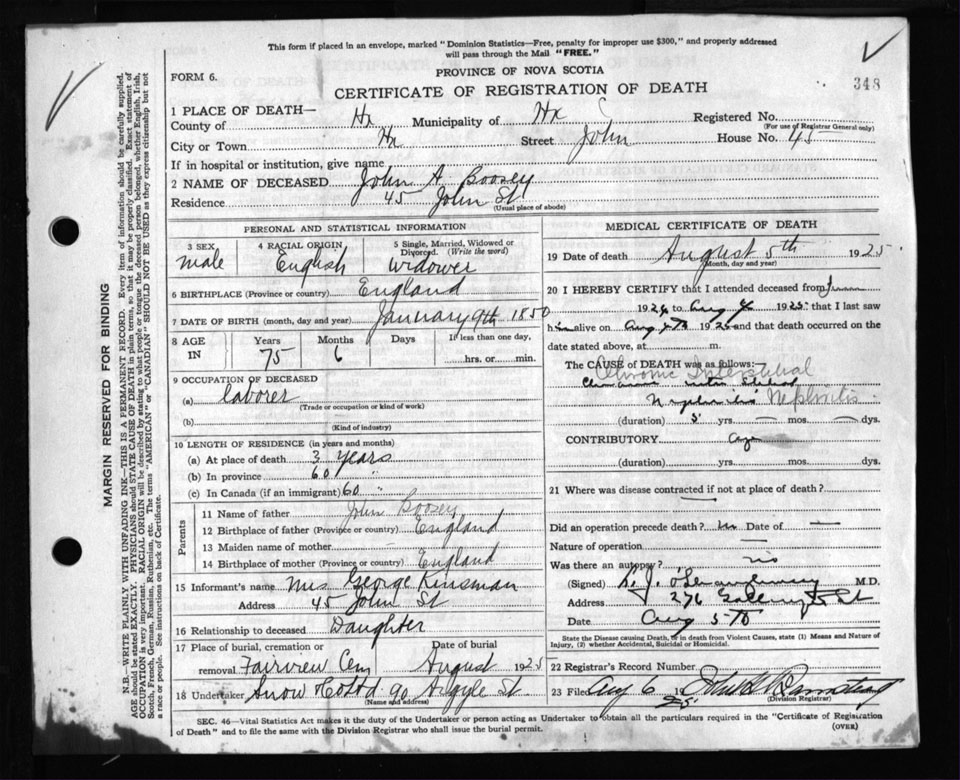 This form if placed in an envelope, marked "Dominion Statistics—Free, penalty for improper use $300," and properly addressed
will pass through the Mail "FREE."
PROVINCE OF NOVA SCOTIA
FORM 6.
CERTIFICATE OF REGISTRATION OF DEATH
348
1 PLACE OF DEATH—
County of Hx Municipality of Hx Registered No.
(For use of Registrar General only)
City or Town Hx Street John House No. 45
If in hospital or institution, give name
2 NAME OF DECEASED John A. Boosey
Residence 45 John St
(Usual place of abode)
PERSONAL AND STATISTICAL INFORMATION
3 SEX
male
4 RACIAL ORIGIN
English
5 Single, Married, Widowed or
Divorced. (Write the word)
widower
6 BIRTHPLACE (Province or country) England
7 DATE OF BIRTH (month, day and year) January 9th 1850
8 AGE
IN
Years
75
Months
6
Days
If less than one day,
hrs. or min.
9 OCCUPATION OF DECEASED
(a) laborer
(Trade or occupation or kind of work)
(b)
(Kind of industry)
10 LENGTH OF RESIDENCE (in years and months)
(a) At place of death 3 years
(b) In province 60 "
(c) In Canada (if an immigrant) 60 "
Parents
11 Name of father John Boosey
12 Birthplace of father (Province or country) England
13 Maiden name of mother —
14 Birthplace of mother (Province or country) England
15 Informant's name Mrs George Kinsman
Address 45 John St
16 Relationship to deceased Daughter
17 Place of burial, cremation or
removal Fairview Cem
Date of burial
August 1925
18 Undertaker Snow & Co Ltd 90 Argyle St.
(Name and address)
MEDICAL CERTIFICATE OF DEATH
19 Date of death August 5th 1925
(Month, day and year)
20 I HEREBY CERTIFY that I attended deceased from
1924 to Aug 4 1925 that I last saw
him alive on Aug 1925 and that death occurred on the
date stated above, at m.
The CAUSE OF DEATH was as follows:
Chronic Interstitial
Nephritis
(duration) 5 yrs. — mos. — dys.
CONTRIBUTORY Age
(duration) yrs. mos. dys.
21 Where was disease contracted if not at place of death?
Did an operation precede death? no Date of —
Nature of operation —
Was there an autopsy? no
(Signed) M.D.
Address 276 St
Date Aug 5th
State the Disease causing Death, or in death from Violent Causes, state (1) Means and Nature of
Injury, (2) whether Accidental, Suicidal or Homicidal.
22 Registrar's Record Number
23 Filed Aug 6 19 25
(Division Registrar)
SEC. 46—Vital Statistics Act makes it the duty of the Undertaker or person acting as Undertaker to obtain all the particulars required in the "Certificate of Registration
of Death" and to file the same with the Division Registrar who shall issue the burial permit.
(OVER)
MARGIN RESERVED FOR BINDING
N.B.—WRITE PLAINLY WITH UNFADING INK—THIS IS A PERMANENT RECORD. Every item of information should be carefully supplied.
AGE should be stated EXACTLY. PHYSICIANS should STATE CAUSE OF DEATH in plain terms, so that it may be properly classified. Exact statement of
OCCUPATION is very important. RACIAL ORIGIN will be described by stating to what people or tongue the deceased person belonged, whether English, Irish,
Scotch, French, German, Russian, Ruthenian, etc. The terms "AMERICAN" or "CANADIAN" SHOULD NOT BE USED as they express citizenship but not
a race or people. See instructions on back of Certificate.